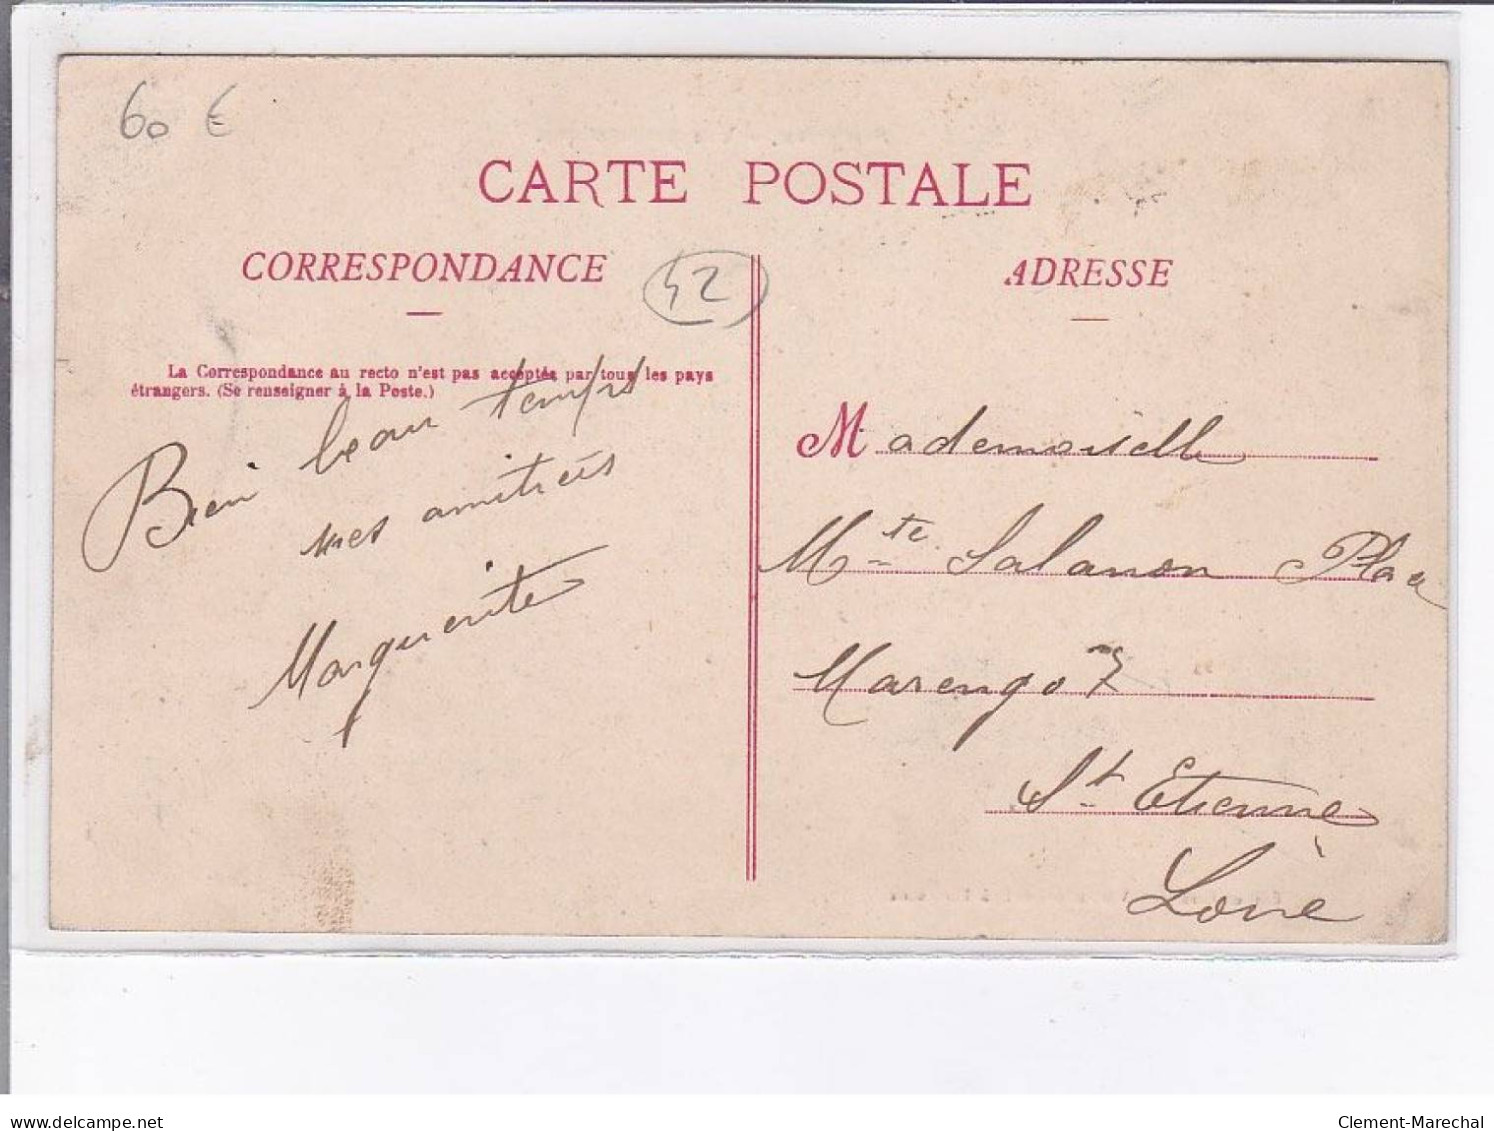 60 €
CARTE POSTALE
CORRESPONDANCE
42
ADRESSE
La Correspondance au recto n'est pas acceptée par tous les pays
étrangers. (Se renseigner à la Poste.)
Bien beau temps
mes amitiés
Marguerite
Mademoiselle
Mte Salanon Place
Marengo 7
St Etienne
Loire
delcampe.net
Clement-Marechal